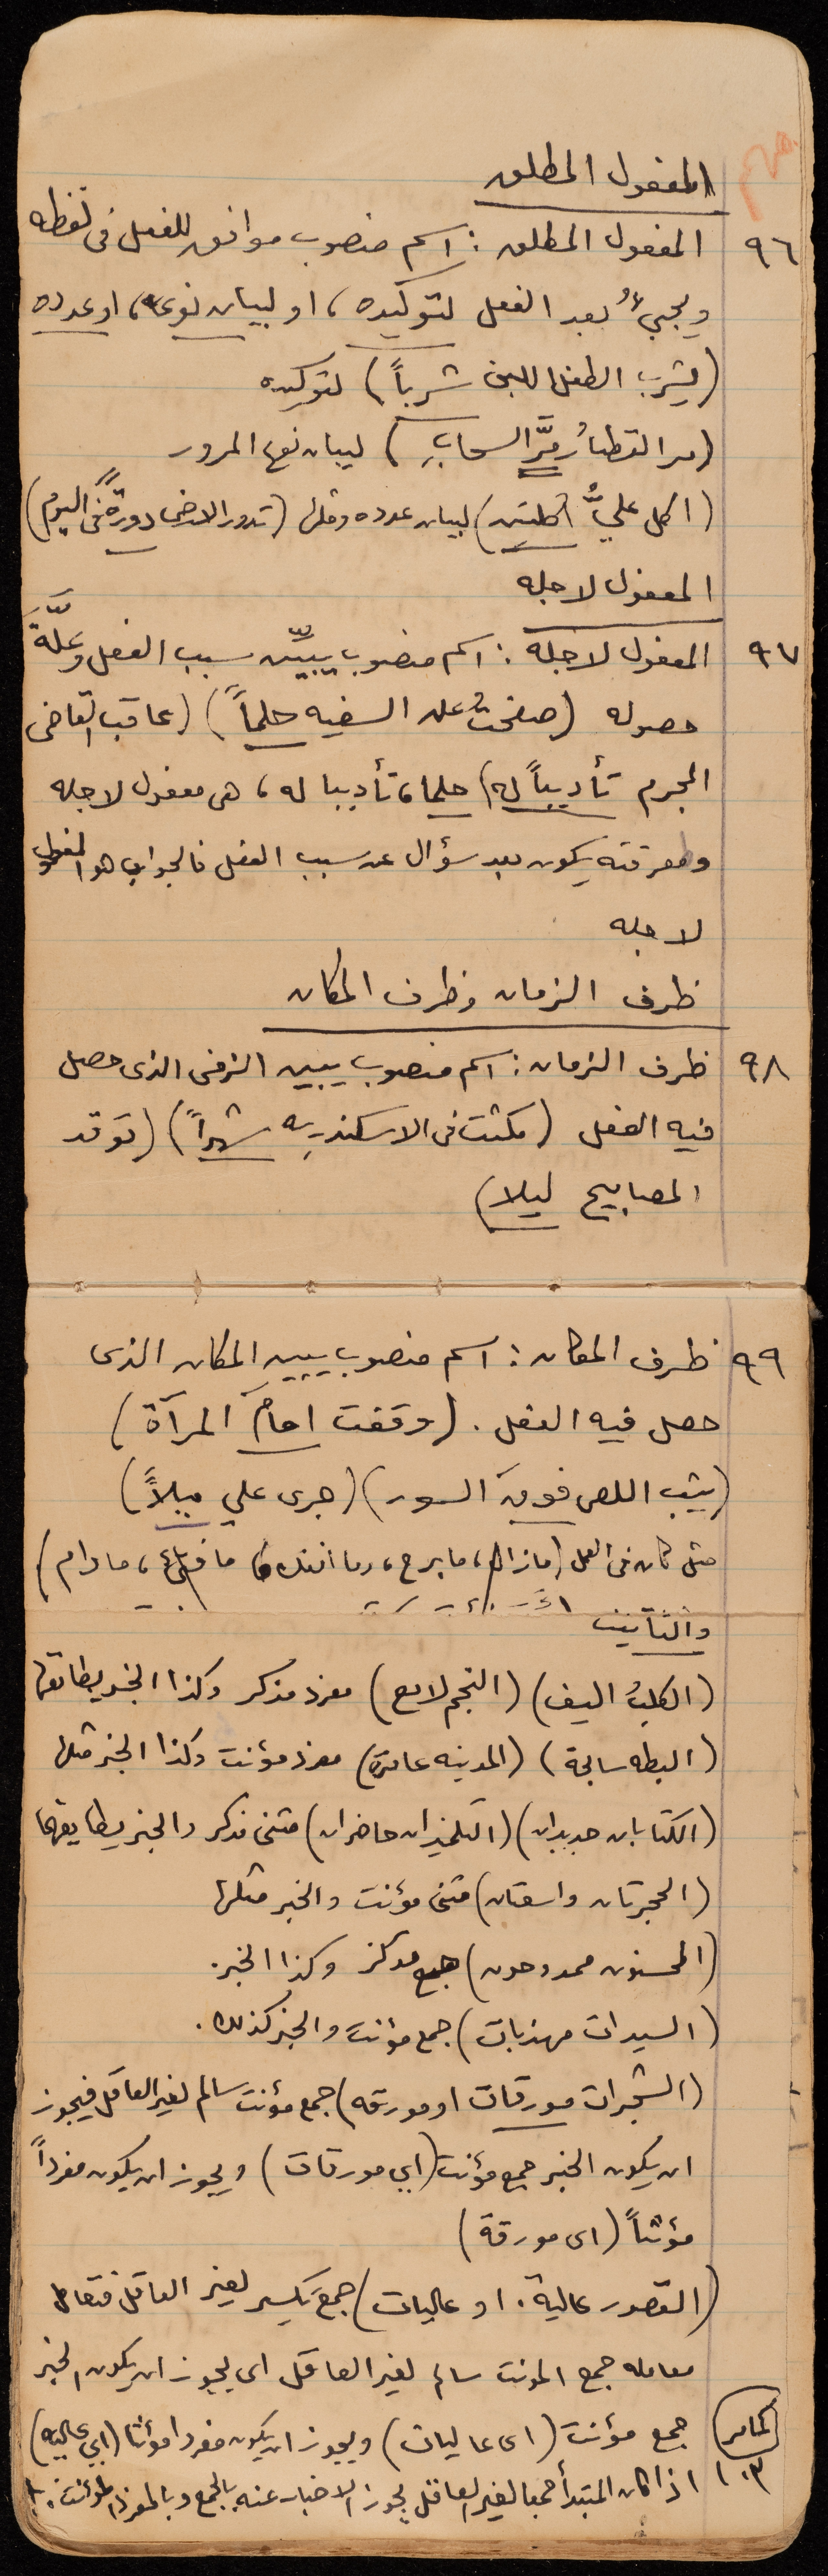 المفعول المطلق
٩٦ المفعول المطلق : اسم منصوب موافق للفعل فى لفظه
ويجيءُ بعد الفعل لتوكيده ، او لبيان نوعه ، او عدده
(يشرب الطفل اللبن شرباً) لتوكيده
(مر القطارُ مرَّ السحابِ) لبيان نوع المرور
(اكل عليٌّ اكلتين) لبيان عدده ومثلها (تدور الارض دورةً فى اليوم)
المفعول لاجله
٩٧ المفعول لاجله : اسم منصوب يبيِّن سبب الفعل وعلَّة
حصوله (صفحتُ عن السفيه حلماً) (عاقب القاضى
المجرم تأديباً له) حلما ، تأديبا له ، هى مفعول لاجله
ومعرفته يكون بعد سؤال عن سبب الفعل فالجواب هو المفعول
لاجله
ظرف الزمان وظرف المكان
٩٨ ظرف الزمان : اسم منصوب يبين الزمن الذى حصل
فيه الفعل (مكثت فى الاسكندريه شهراً) (توقد
المصابيح ليلا)
٩٩ ظرف المكان : اسم منصوب يبين المكان الذى
حصل فيه الفعل . (وقفت امامَ المرآة)
(يثب اللص فوقَ السور) (جرى علي ميلاً)
مثل كان فى العمل (مازال ، ما برح ، وما انفك ، ما فتىء ، مادام)
والتأنيث
(الكلبُ اليف) (النجم لامع) مفرد مذكر وكذا الخبر يطابقها
(البطه سابحة) (المدينه عامرة) مفرد مؤنث وكذا الخبر مثلها
(الكتابان جديدان) (التلميذان حاضران) مثنى مذكر والخبر يطابقهما
(الحجرتان واسعتان) مثنى مؤنث والخبر مثلها
(المحسنون ممدوحون) جمع مذكر وكذا الخبر .
(السيدات مهذبات) جمع مؤنث والخبر كذلك .
(الشجرات مورقات او مورقه) جمع مؤنث سالم لغير العاقل فيجوز
ان يكون الخبر جمع مؤنث (اي مورقات) ويجوز ان يكون مفرداً
مؤنثاً (اى مورقة)
(القصور عالية . او عاليات) جمع تكسير لغير العاقل فتعامل
معامله جمع المؤنث سالم لغير العاقل اى يجوز ان يكون الخبر
جمع مؤنث (اى عاليات) ويجوز ان يكون مفردا مؤنثا (اي عاليه)
١٠٣ اذا كان المبتدأ جمعا لغير العاقل يجوز الاخبار عنه بالجمع وبالمفرد المؤنث .